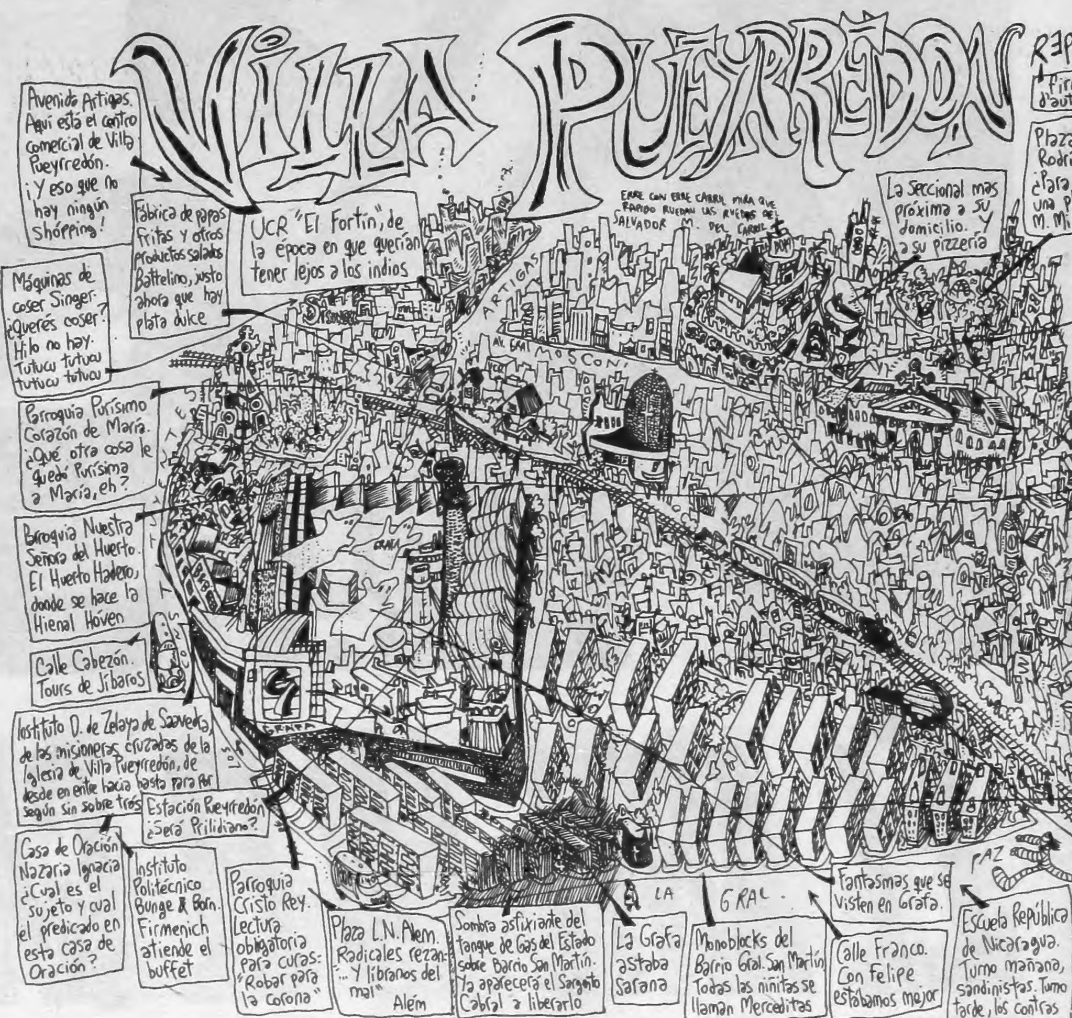 VILLA PUEYRREDÓN
REP
Fir
d'aut
Avenida Artigas.
Aquí está el centro
comercial de Villa
Pueyrredón.
¡Y eso que no
hay ningún
shópping!
Fábrica de papas
fritas y otros
productos salados
Battelino, justo
ahora que hay
plata dulce
UCR "El Fortín", de
la época en que querían
tener lejos a los indios
ERRE CON ERRE CARRIL MIRA QUE
RAPIDO RUEDAN LAS RUEDAS DEL
SALVADOR M. DEL CARRIL
La seccional mas
próxima a su
domicilio. Y
a su pizzería
Plaza
Rodri
¿Para
una p
M. M.
Máquinas de
coser Singer.
¿Querés coser?
Hilo no hay.
Tutucu tutucu
tutucu tutucu
ARTIGAS
AV. GRAL MOSCONI
Parroquia Purísimo
Corazón de María.
¿Qué otra cosa le
quedó Purísima
a María, eh?
Parroquia Nuestra
Señora del Huerto.
El Huerto Hadero,
donde se hace la
Hienal Hóven
GRAFA
Calle Cabezón.
Tours de Jíbaros
CONSTITUYENTES
LOS
GRAFA
Instituto D. de Zelaya de Saavedra,
de las misioneras cruzadas de la
Iglesia de Villa Pueyrredón, de
desde en entre hacia hasta para por
según sin sobre trás
Estación Pueyrredón
¿Será Prilidiano?
Casa de Oración
Nazaria Ignacia
¿Cual es el
sujeto y cual
el predicado en
esta casa de
Oración?
Instituto
Politécnico
Bunge & Born.
Firmenich
atiende el
buffet
Parroquia
Cristo Rey.
Lectura
obligatoria
para curas:
"Robar para
la corona"
Plaza L.N. Alem.
Radicales rezan:
"... Y líbranos del
mal"
Além
Sombra asfixiante del
tanque de Gas del Estado
sobre Barrio San Martín.
Ya aparecerá el Sargento
Cabral a liberarlo
LA GRAL. PAZ
La Grafa
astaba
Sarana
Monoblocks del
Barrio Gral. San Martín
Todas las niñitas se
llaman Merceditas
Fantasmas que se
visten en Grafa.
Calle Franco.
Con Felipe
estábamos mejor
Escuela República
de Nicaragua.
Turno mañana,
sandinistas. Turno
tarde, los contras